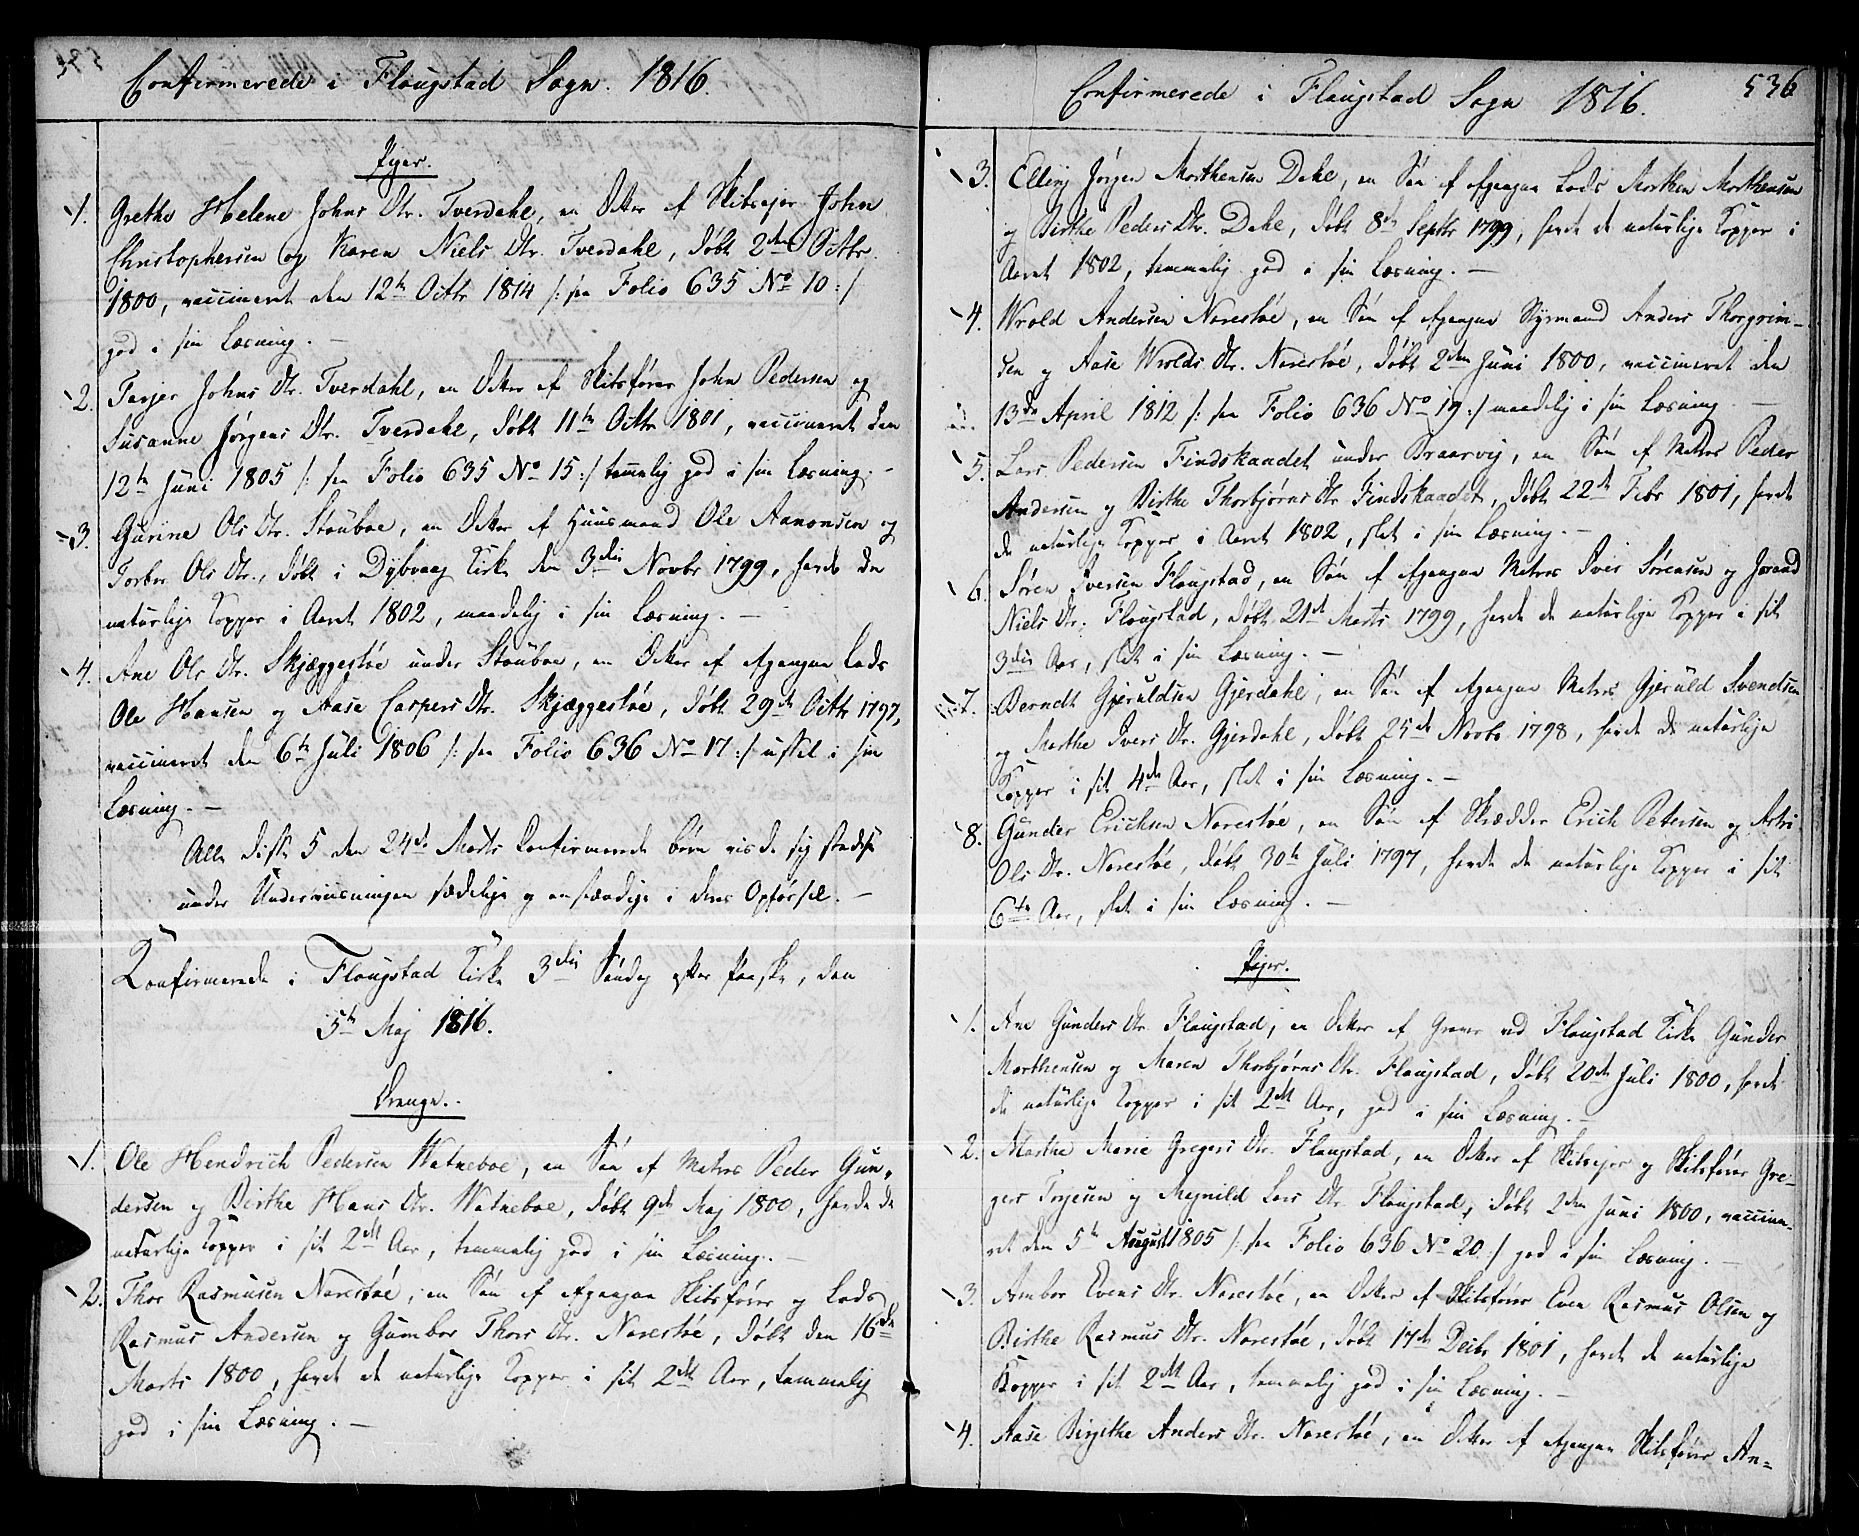 Confirmerede i Flougstad Sogn. 1816.
Piger.
1. Grethe Helene Johns Dtr. Tverdahl, en Dotter af Skibseyer John
Christophersen og Karen Niels Dtr. Tverdahl, døbt 2den Octbr.
1800, vaccineret den 12te Octbr 1814 /: see Folio 635 No 10 :/
god i sin Læsning. —
2. Tarjer Johns Dtr. Tverdahl, en Dotter af Skibsfører John Pedersen og
Susanne Jørgens Dtr. Tverdahl, døbt 11te Octbr 1801, vaccineret den
12te Juni 1805 /: see Folio 635 No 15 :/ temmelig god i sin Læsning. —
3. Gurine Ols Dtr. Stouboe, en Dotter af Huusmand Ole Aanonsen og
Torbor Ols Dtr., døbt i Dybvaag Kirke den 3die Novbr 1799, havde de
naturlige Kopper i Aaret 1802, maadelig i sin Læsning. —
4. Ane Ols Dtr. Skjæggestøe under Stouboe, en Dotter af Afgangne Lods
Ole Hansen og Aase Caspers Dtr. Skjæggestøe, døbt 29de Octbr 1797,
vaccineret den 6te Juli 1806 /: see Folio 636 No 17 :/ ussel i sin
Læsning. —
Alle disse 5 den 24de Marts Confirmerede børn viste sig stedse
under Underviisningen sædelige og anstændige i deres Opførsel. —
Konfirmerede i Flougstad Kirke 3die Søndag efter Paaske, den
5te Maj 1816.
Drenge.
1. Ole Hendrich Pedersen Watneboe, en Søn af Matros Peder Gun-
dersen og Birthe Hans Dtr. Watneboe, døbt 9de Maj 1800, havde de
naturlige Kopper i sit 2det Aar, temmelig god i sin Læsning. —
2. Thor Rasmusen Narestøe, en Søn af Afgangne Skibsfører og Lods
Rasmus Andersen og Gumbor Thors Dtr. Narestøe, døbt den 16de
Marts 1800, havde de naturlige Kopper i sit 2det Aar, temmelig
god i sin Læsning. —
Confirmerede i Flaugstad Sogn 1816. 536
3. Elling Jørgen Morthensen Dahl, en Søn af Afgangne Lods Morthen Morthensen
og Birthe Peders Dtr. Dahl, døbt 8de Septbr 1799, havde de naturlige Kopper i
Aaret 1802, temmelig god i sin Læsning. —
4. Wrold Andersen Narestøe, en Søn af Afgangne Styrmand Anders Thorgrim-
sen og Aase Wrolds Dtr. Narestøe, døbt 2den Juni 1800, vaccineret den
13de April 1812 /: see Folio 636 No 19 :/ maadelig i sin Læsning —
5. Lars Pedersen Findskaadet under Braarvig, en Søn af Matros Peder
Andersen og Birthe Thorbjørns Dtr Findskaadet, døbt 22de Febr 1801, havde
de naturlige Kopper i Aaret 1802, slet i sin Læsning. —
6. Søren Iversen Flougstad, en Søn af Afgangne Matros Iver Sørensen og Jorand
Niels Dtr. Flougstad, døbt 21de Marts 1799, havde de naturlige Kopper i sit
3die Aar, slet i sin Læsning. —
7. Berndt Gjeruldsen Gjerdahl, en Søn af Afgangne Matros Gjeruld Svendsen
og Marthe Ivers Dtr. Gjerdahl, døbt 25de Novbr 1798, havde de naturlige
Kopper i sit 4de Aar, slet i sin Læsning. —
8. Gunder Erichsen Narestøe, en Søn af Skrædder Erich Petersen og Astri
Ols Dtr. Narestøe, døbt 30te Juli 1797, havde de naturlige Kopper i sit
6te Aar, slet i sin Læsning. —
Piger.
1. Ane Gunders Dtr. Flougstad, en Dotter af Graver ved Flougstad Kirke Gunder
Morthensen og Maren Thorbjørns Dtr. Flougstad, døbt 20de Juli 1800, havde
de naturlige Kopper i sit 2det Aar, god i sin Læsning. —
2. Marthe Marie Gregers Dtr. Flougstad, en Dotter af Skibseyer og Skibsfører Gre-
gers Terjesen og Magnild Lars Dtr Flougstad, døbt 2den Juni 1800, vaccine-
ret den 5te August 1805 /: see Folio 636 No 20 :/ god i sin Læsning. —
3. Ambor Evens Dtr. Narestøe, en Dotter af Skibsfører Even Rasmus Olsen og
Birthe Rasmus Dtr. Narestøe, døbt 17de Decbr 1801, havde de naturlige
Kopper i sit 2det Aar, temmelig god i sin Læsning. —
4. Aase Birgithe Anders Dtr. Narestøe, en Dotter af Afgangne Skibsfører An-